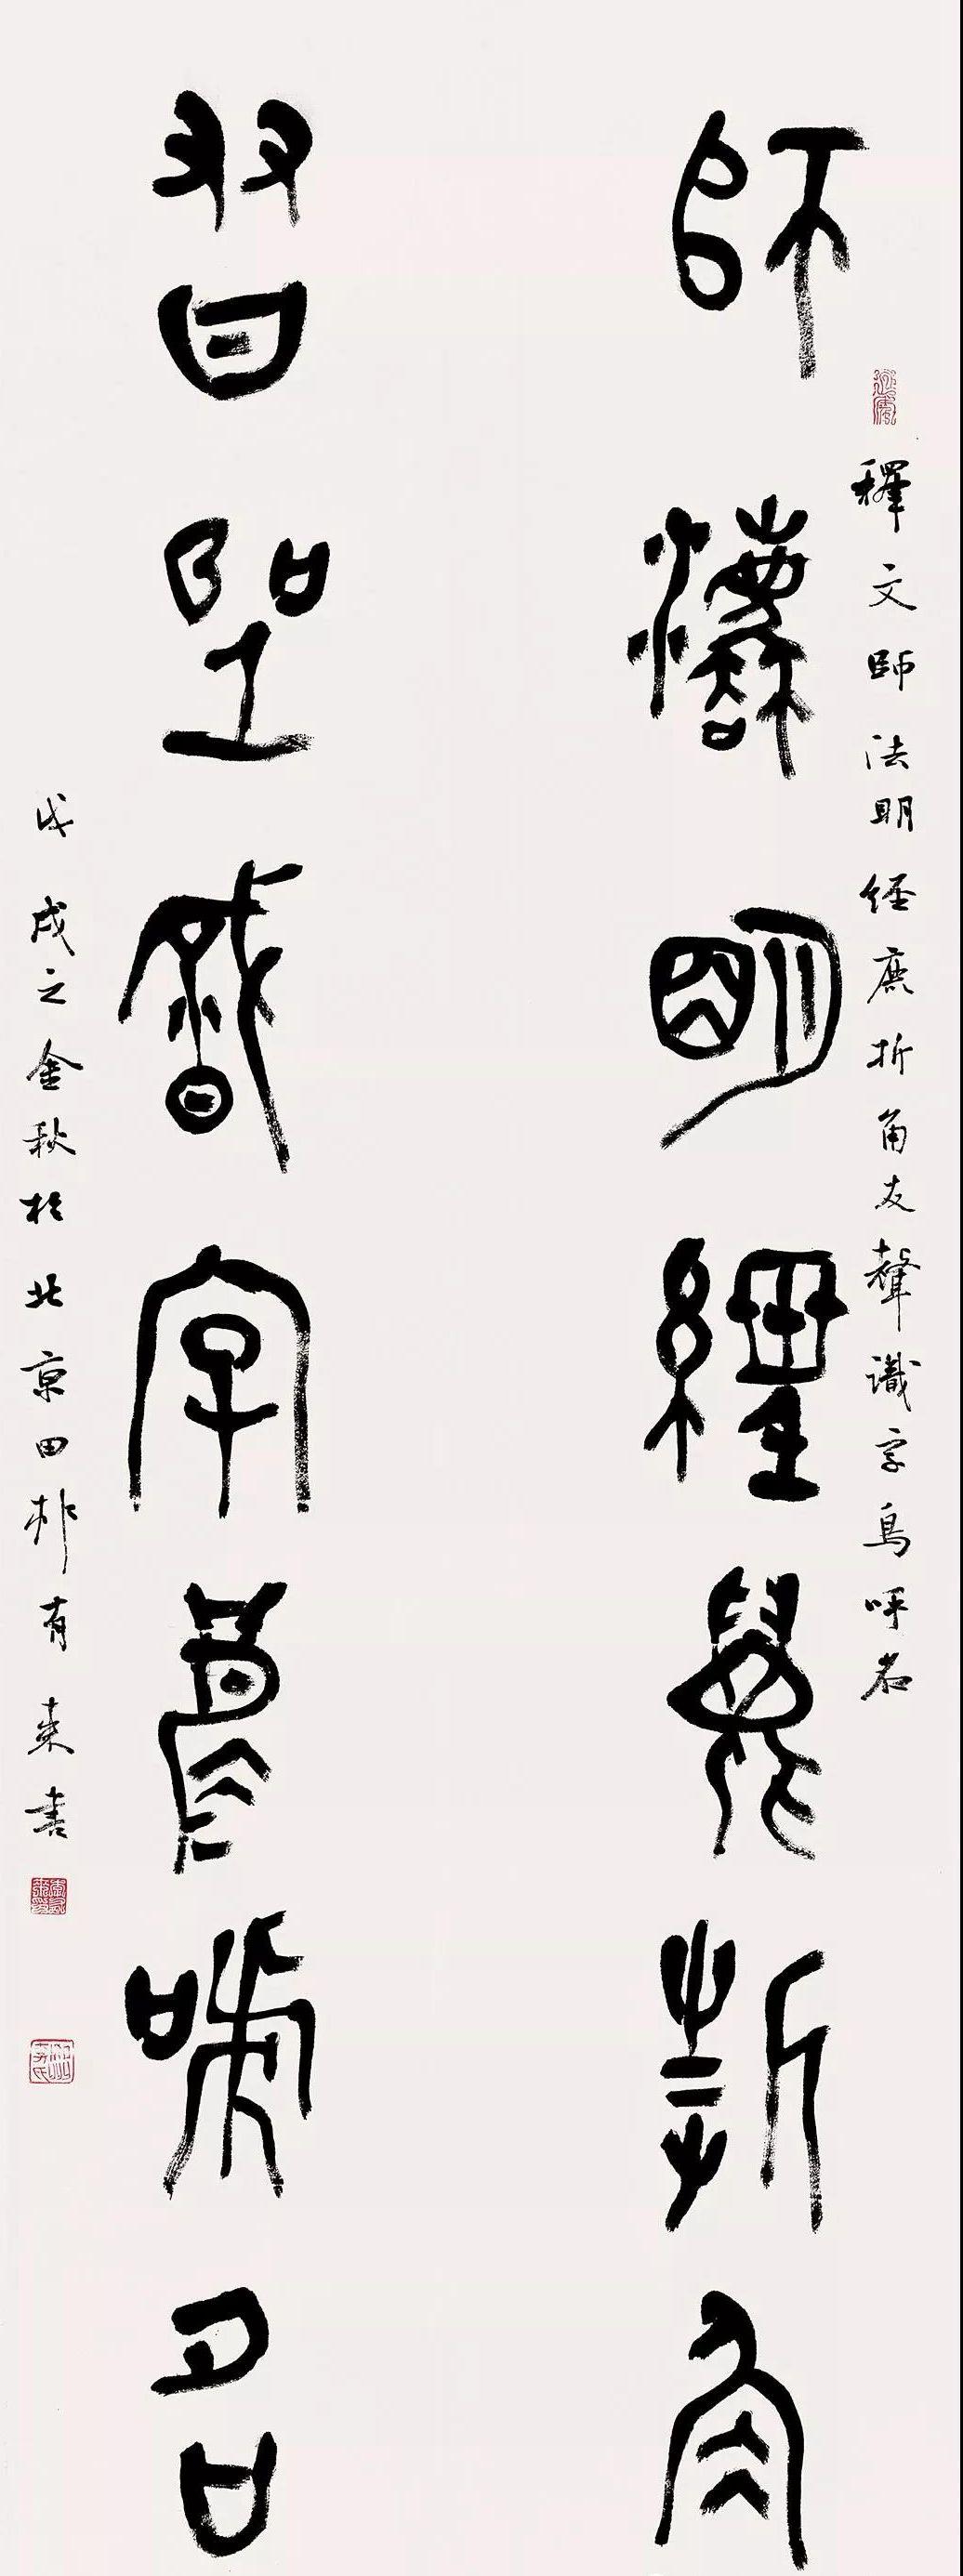 師法明經鹿折角
友聲識字鳥呼名
釋文師法明經鹿折角友聲識字鳥呼名
戊戌之金秋於北京田邨有來書